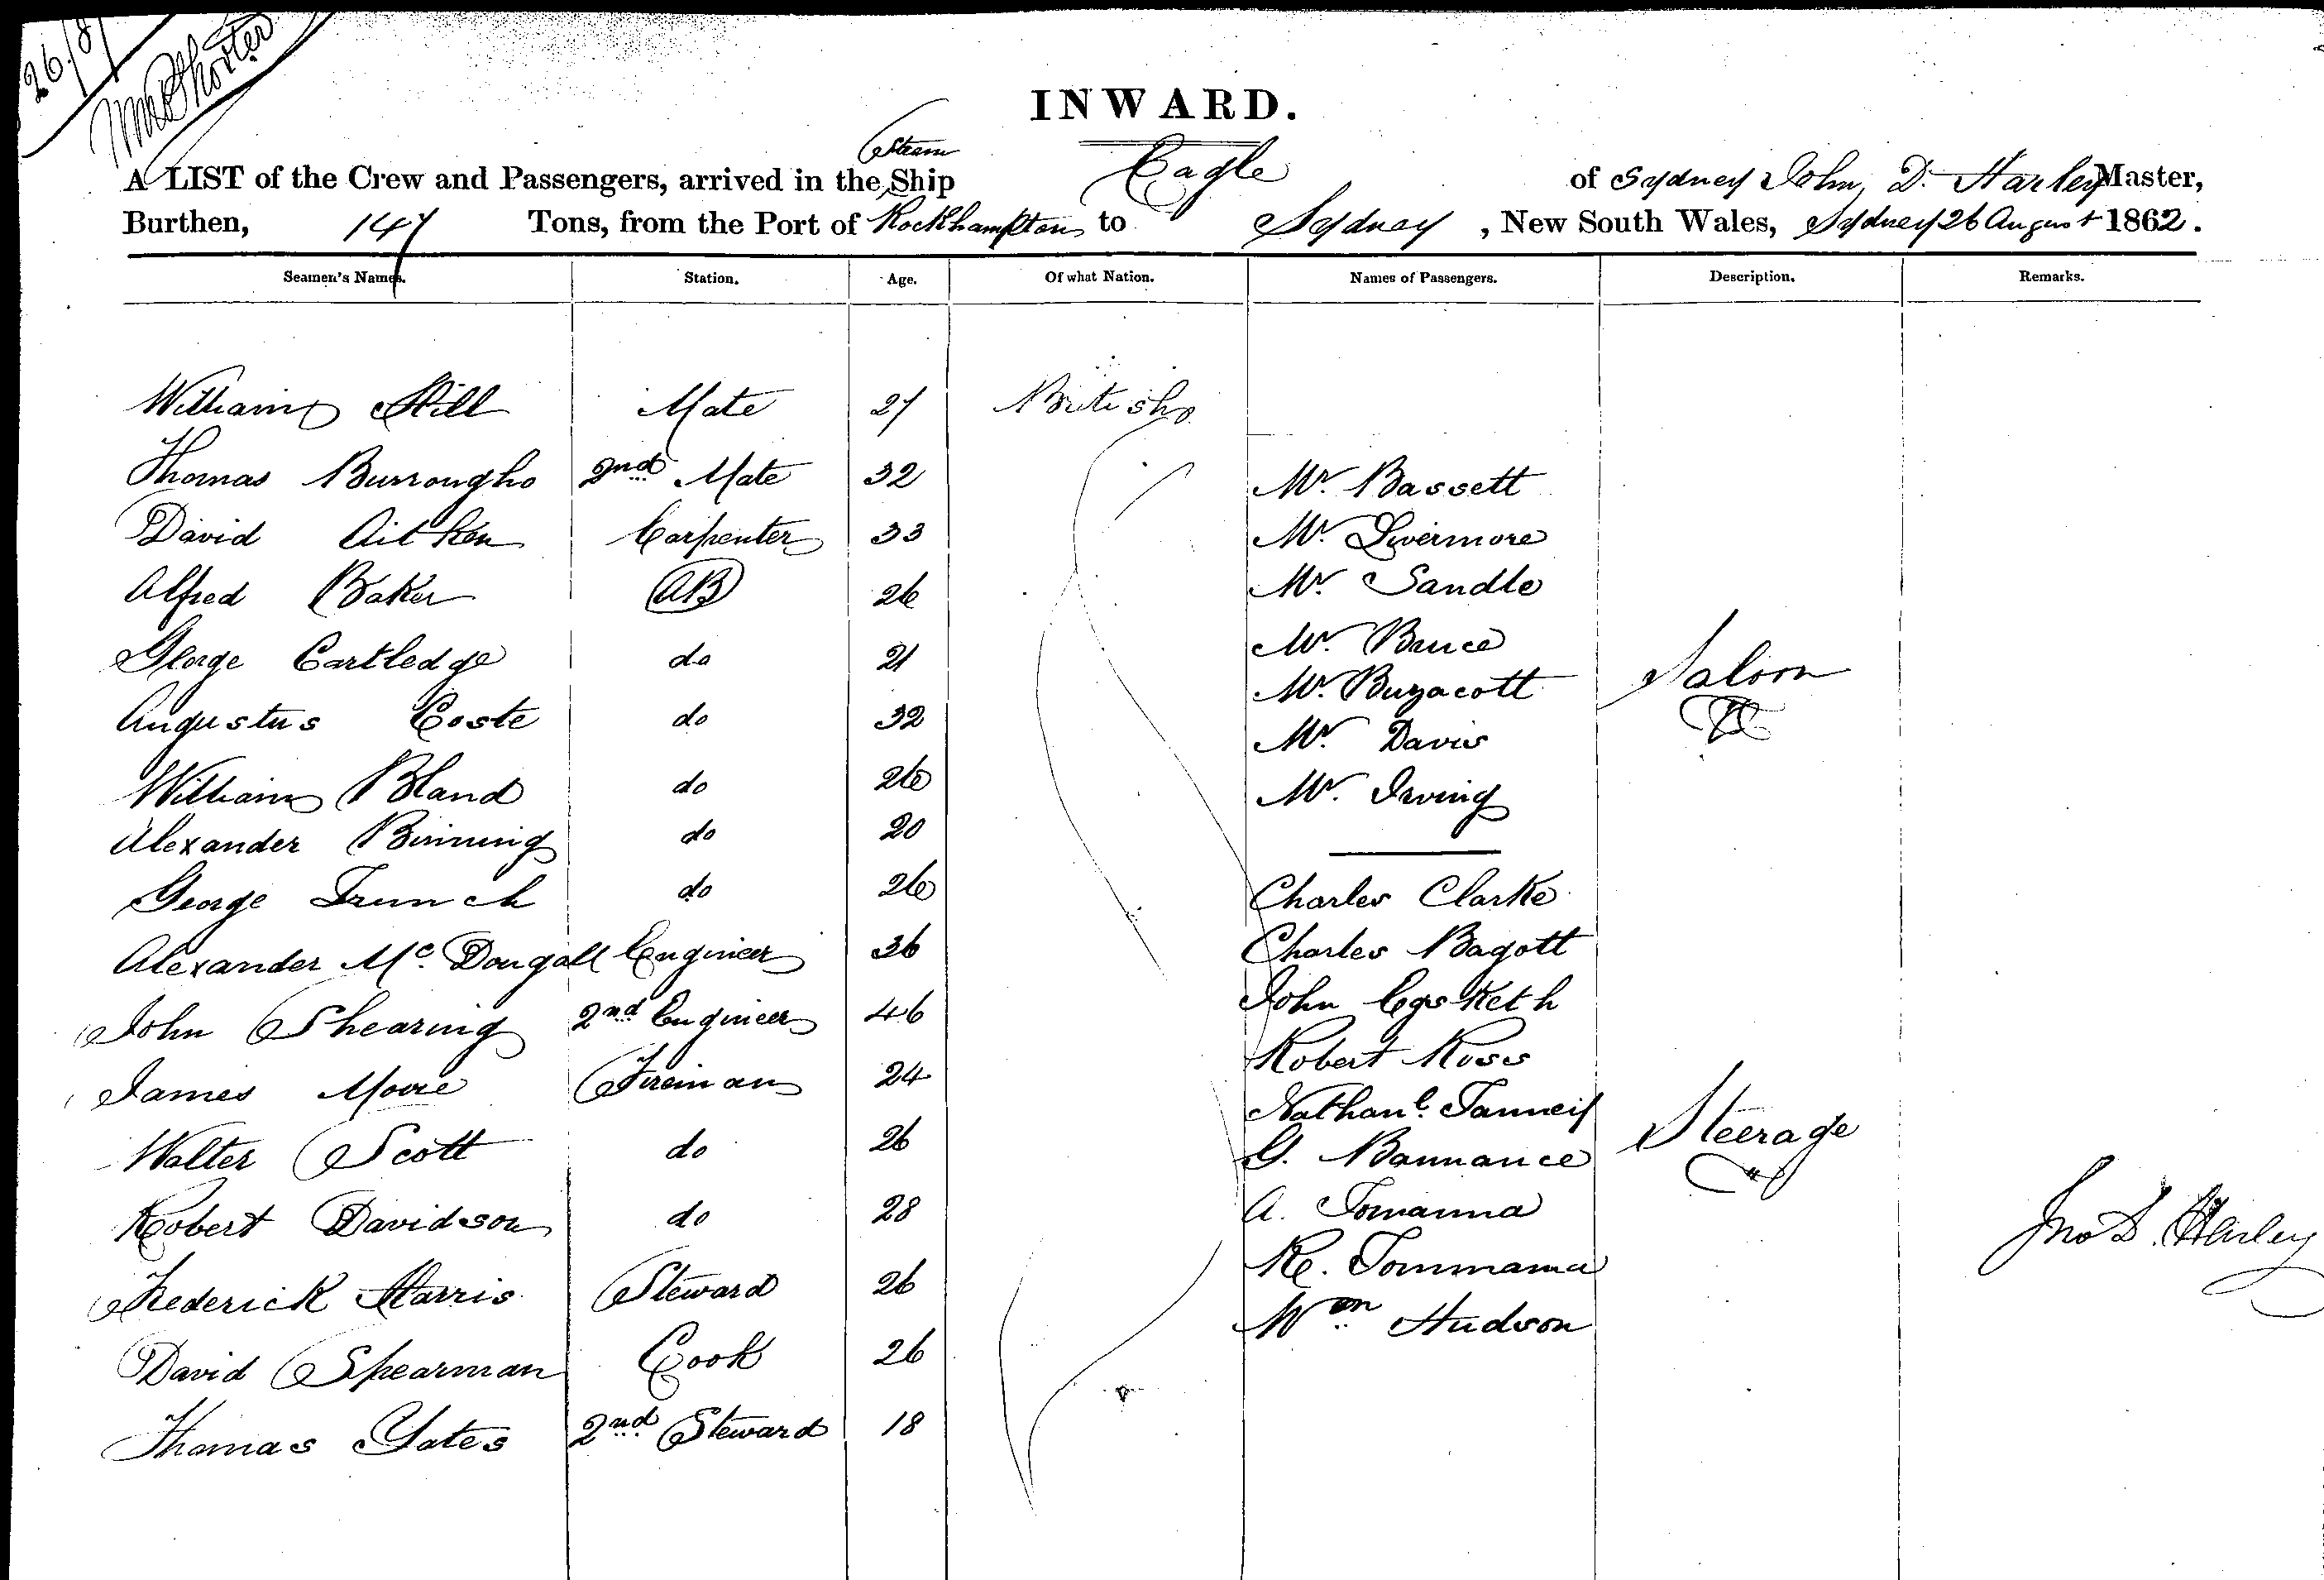 26/8/
INWARD.
Steam
A LIST of the Crew and Passengers, arrived in the Ship Eagle of Sydney John D. Harley Master,
Burthen, 147 Tons, from the Port of Rockhampton to Sydney, New South Wales, Sydney 26 August 1862.
Seamen's Names. Station. Age. Of what Nation. Names of Passengers. Description. Remarks.
William Hill Mate 27 British
Thomas Burroughs 2nd Mate 32 Mr. Bassett
David Aitken Carpenter 33 Mr. Livermore
Alfred Baker AB 26 Mr. Sandle
George Cartledge do 21 Mr. Bruce
Saloon
Augustus Coste do 32 Mr. Buzacott
Mr. Davis
William Bland do 26 Mr. Irving
Alexander Binning do 20
George Trunch do 26 Charles Clarke
Alexander Mc. Dougall Engineer 36 Charles Bagott
John Shearing 2nd Engineer 46 John
Robert Ross
James Moore Fireman 24 Nathanl.
Walter Scott do 26 G. Bannance Steerage
Robert Davidson do 28 A. Tomanna
Jno D. Harley
Frederick Harris Steward 26 R. Tommama
David Spearman Cook 26 Wm Hudson
Thomas Yates 2nd Steward 18